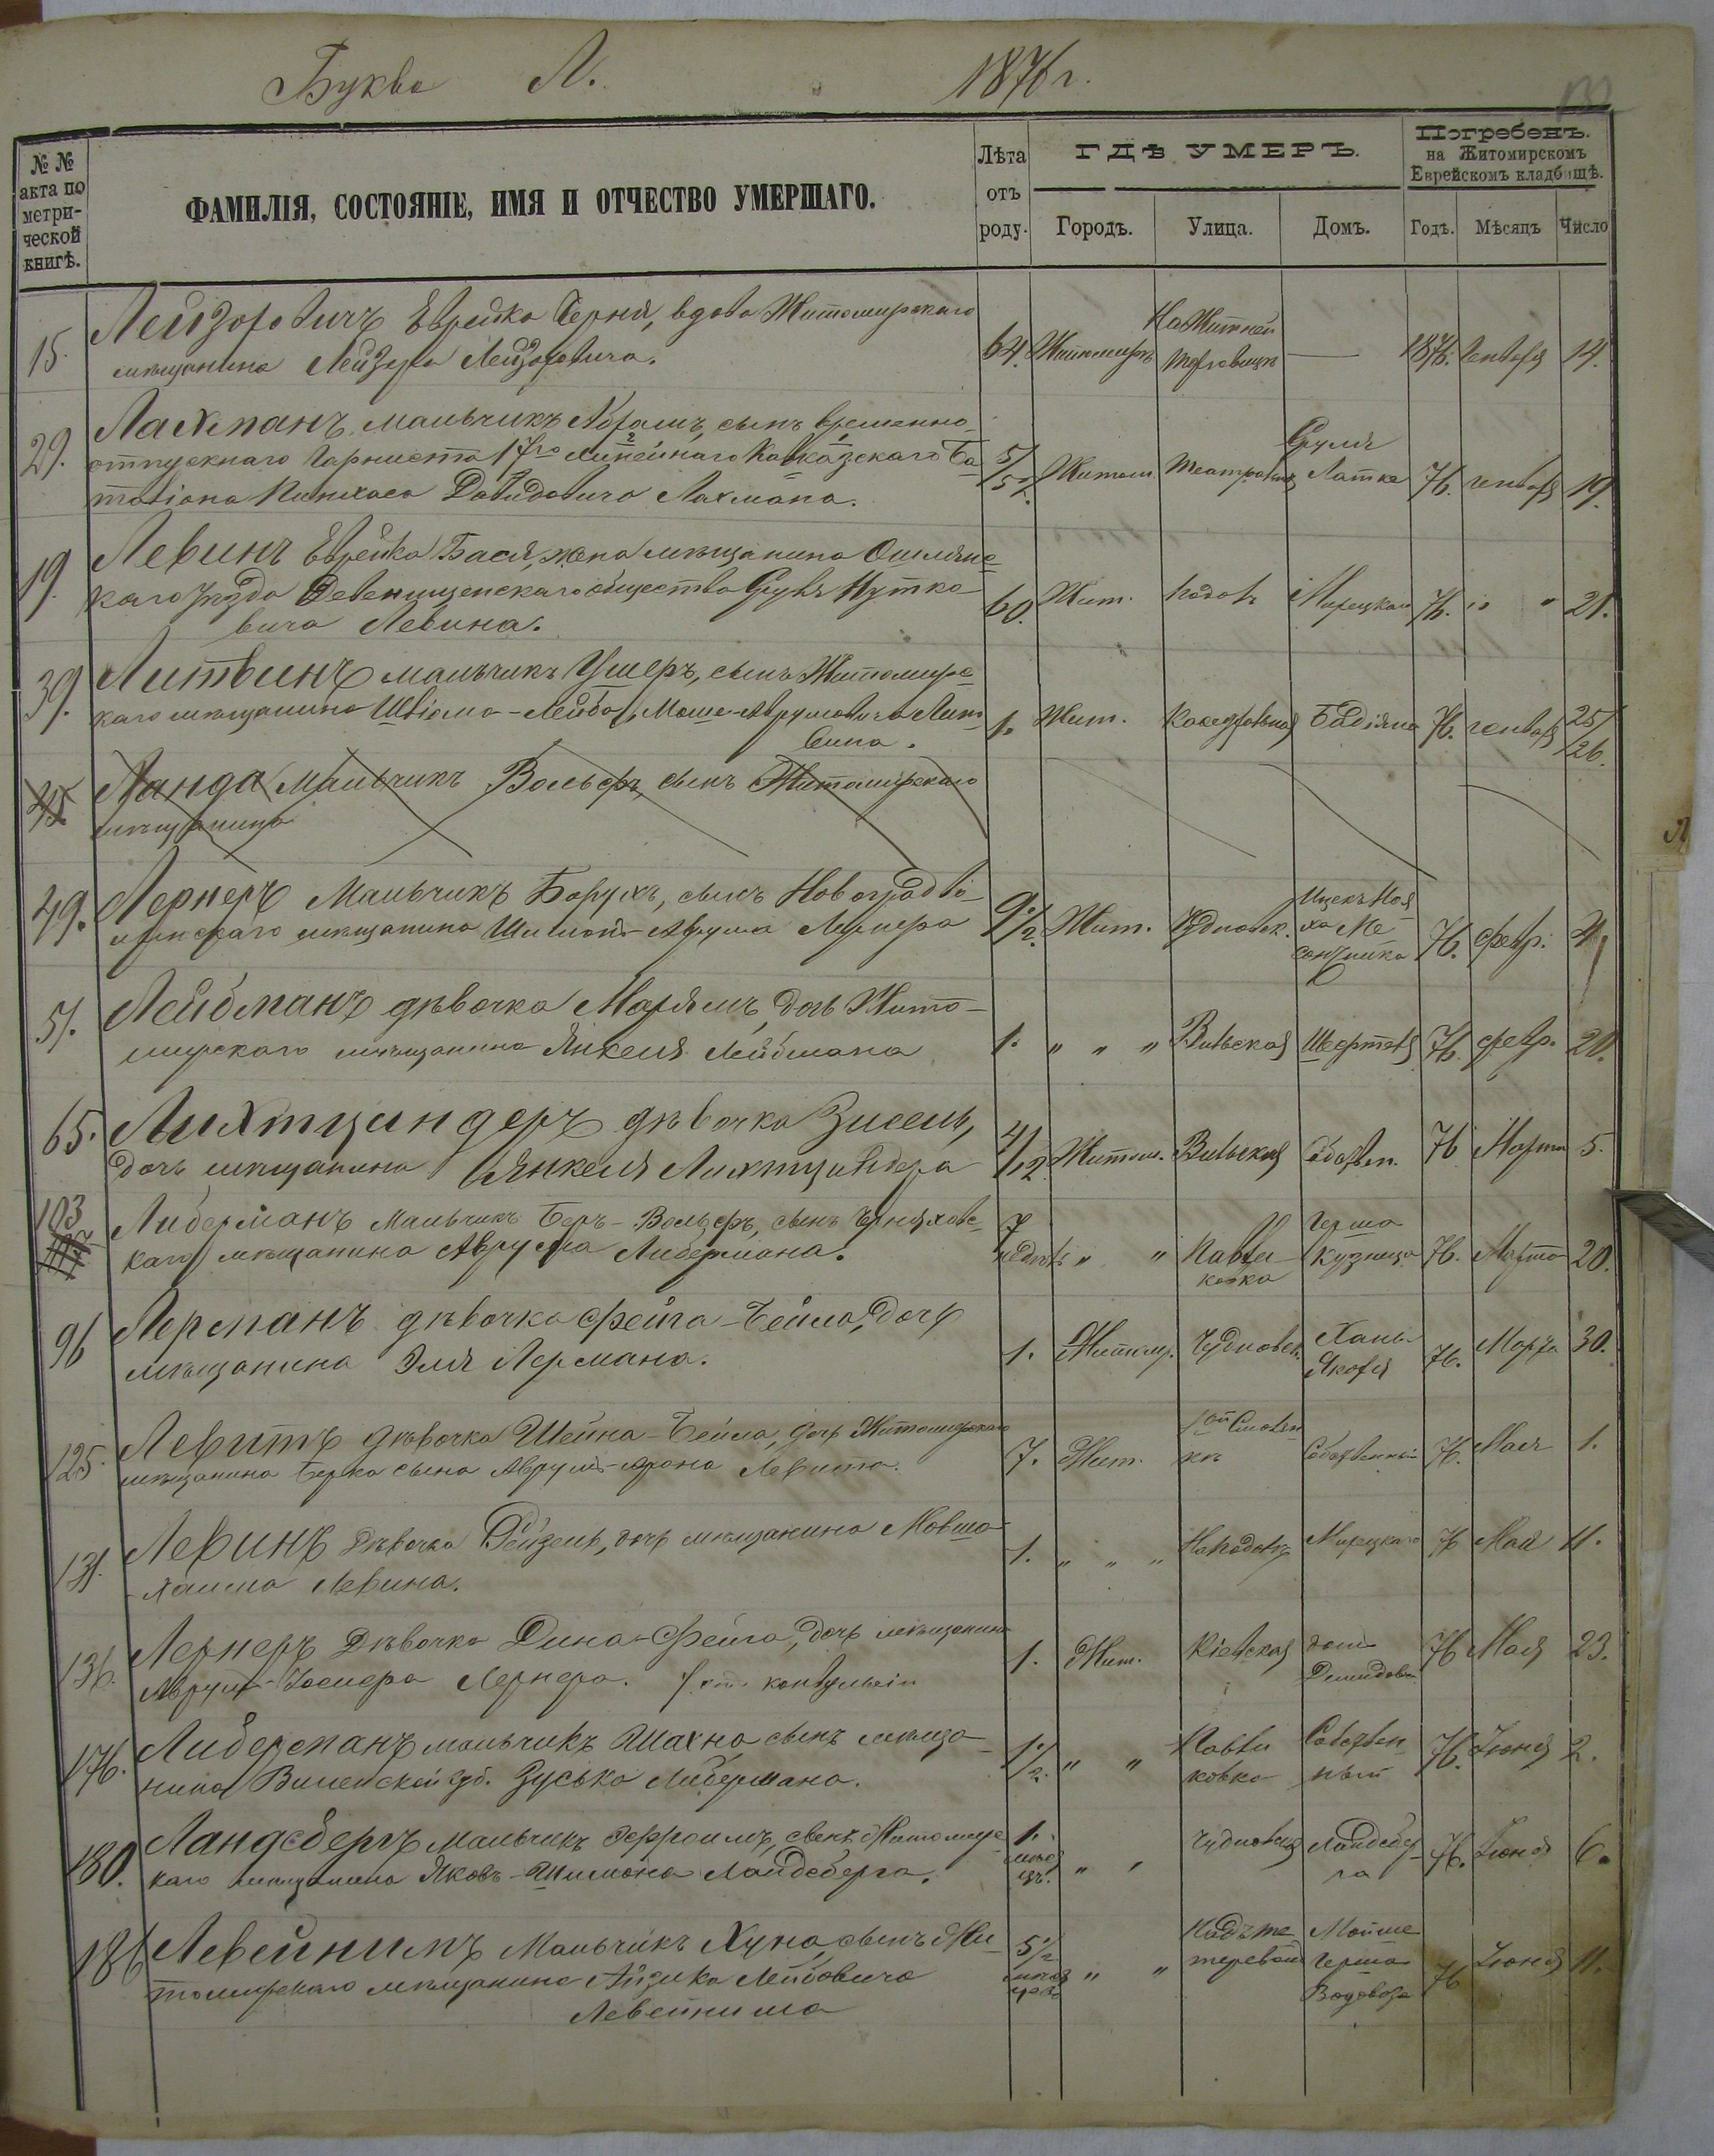 Буква Л. 1876 г.
№ № акта по метри- ческой книгѣ.
ФАМИЛІЯ, СОСТОЯНІЕ, ИМЯ И ОТЧЕСТВО УМЕРШАГО.
Лѣта отъ роду.
ГДѢ УМЕРЪ.
Городъ. Улица. Домъ.
Погребенъ.
на Житомирскомъ
Еврейскомъ кладбищѣ.
Годъ. Мѣсяцъ Число
15. Лейзоровичъ Еврейка Черня, вдова Житомирскаго
мѣщанина Лейзера Лейзоровича. 64. Житомиръ На Житней Торговицѣ — 1876. Января 14.
29. Лахманъ мальчикъ Абрамъ, сынъ временно-
отпускнаго Горниста 17го Линейнаго Кавказскаго Ба
талiона Пинхаса Давидовича Лахмана. 5/ Житом. Театральн. Сруля Латке 76. января 19.
19. Левинъ Еврейка Бася, жена мѣщанина Ошмянс-
каго уѣзда Девенишенскаго общества Нутко
вича Левина. 60. Жит. Подолъ Мирецкаго 76. " 21.
39. Литвинъ мальчикъ Ушеръ, сынъ Житомирс-
каго мѣщанина Лейба, Моше-Аврумовича Лит
вина. 1. Жит. Каѳедральная 76. января 25/26.
45. Ланда мальчикъ Вольфъ, сынъ Житомирскаго
мѣщанина
49. Лернеръ Мальчикъ Борухъ, сынъ Новоградво-
лынскаго мѣщанина Шимона-Аврума Лернера Жит. Чудновск. Ицекъ Ноя 76. февр. 4
51. Лейбманъ дѣвочка Марьямъ, дочь Жито-
мирскаго мѣщанина Янкеля Лейбмана 1. " " " Вильская 76. февр. 20.
65. Лихтциндеръ дѣвочка Зисель,
дочь мѣщанина Янкеля Лихтциндера 4/12 Житом. Вильская Собствен. 76 Марта 5.
103 Либерманъ мальчикъ Беръ-Вольфъ, сынъ Черняховс-
каго мѣщанина Аврума Либермана. 7 недѣль " " Павли- ковка Герша Кузнеца 76. Марта 20.
96 Лерманъ дѣвочка Фейга-Бейла, дочь
мѣщанина Эля Лермана. 1. Житомир. Чудновск. Ханы Яковъ 76. Марта 30.
125. Левитъ дѣвочка Шейна-Бейла, дочь Житомирскаго
мѣщанина Берка сына Аврумъ-Арона Левита. 7. Жит. Собственный 76. Мая 1.
131. Левинъ дѣвочка Рейзель, дочь мѣщанина Мовша-
Хаима Левина. 1. " " " На Подолѣ Мирецкаго 76 Мая 11.
136. Лернеръ дѣвочка Дина-Фейга, дочь мѣщанина
Аврумъ-Іосифера Лернера. / отъ конвульсіи 1. Жит. Кіевская домъ Демидова 76 Мая 23.
176. Либерманъ мальчикъ Шахна сынъ мѣща-
нина Виленской губ. Зуська Либермана. 1/2. " " Павли ковка Собствен- ный 76. Іюня 2.
180. Ландсбергъ мальчикъ Эфроимъ, сынъ Житомирс
каго мѣщанина Яковъ-Шимона Ландсберга. 1. мѣся цъ. " " Чудновская Ландсбер- га 76. Іюня 6.
186 Левейнимъ Мальчикъ Хуна, сынъ Жи-
томирскаго мѣщанина Айзика Лейбовича
Левейнима 5 1/2 мѣся цевъ " " Надъ те теревомъ Мойше Герша Водовоза 76 Іюня 11.